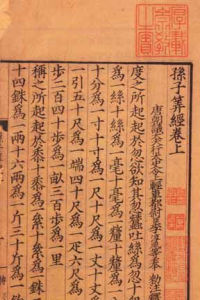 孫子筭經卷上
唐朝議大夫行太史令上輕車都尉臣李淳風等奉 勑注
度之所起起於忽欲知其忽蠶吐絲爲忽十
爲一絲十絲爲一毫十毫爲一釐十釐爲
十分爲一寸十寸爲一尺十尺爲一丈十丈
一引五十尺爲一端四十尺爲一疋六尺
步二百四十步爲一畝三百步爲一里
稱之所起起於黍十黍爲一絫十絫爲一銖
十四銖爲一兩十六兩爲一斤三十斤爲一